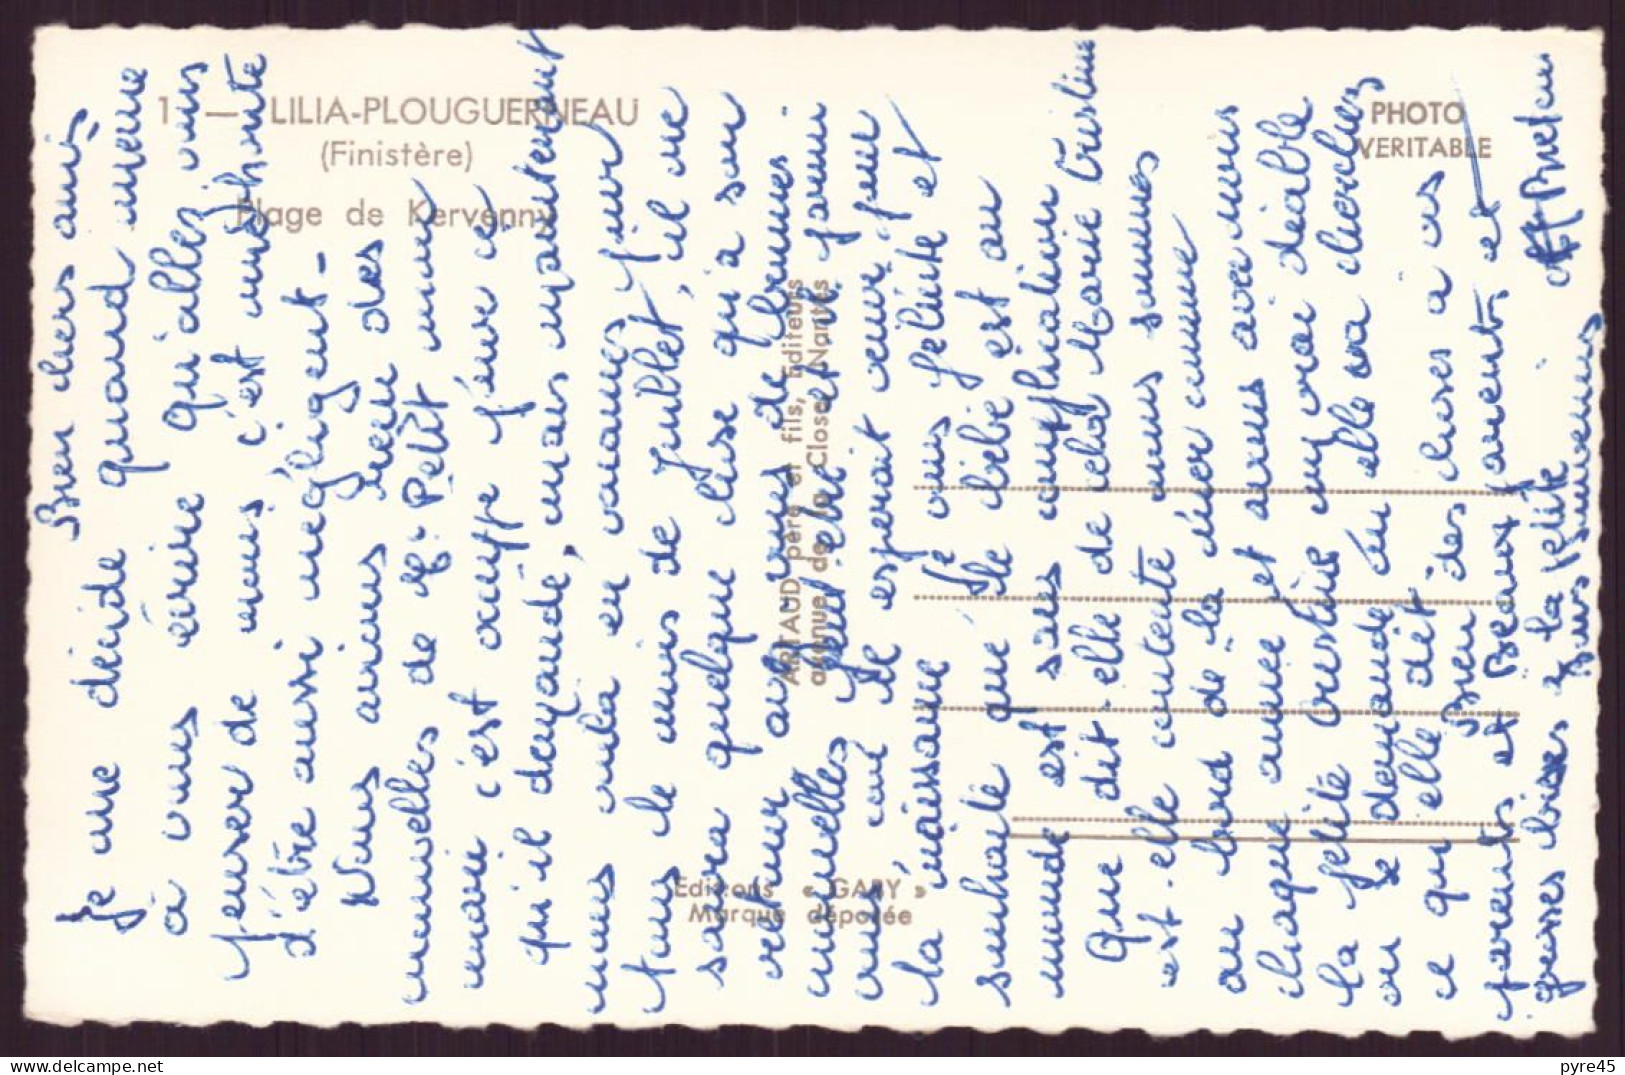 1 — LILIA-PLOUGUERNEAU
(Finistère)
Plage de Kervenny
PHOTO
VERITABLE
ARTAUD père et fils, Editeurs
avenue de la Close, Nantes
Editions « GABY »
Marque déposée
Bien chers amis
Je me décide quand même
à vous écrire qu'allez vous
penser de nous, c'est une honte
d'être aussi négligent -
Nous avions bien des
nouvelles de Mr Petit mon
mari c'est occupé pour ce
qu'il demande, mais maintenant
nous voila en vacances pour
tous le mois de Juillet, il me
saura quelque chose qu'a son
retour avez vous de bonnes
nouvelles
la naissance Je vous félicite et
souhaite que le bébé est au
monde est sans complication
Que dit-elle de cela Marie Cristine
est-elle contente nous sommes
au bord de la mer comme
chaque année et avons avec nous
la petite un vrai diable
on se demande où elle va chercher
ce qu'elle dit
Bien des choses à vos
parents et Beaux parents et
grosses bises à la petite
Bons Souvenirs